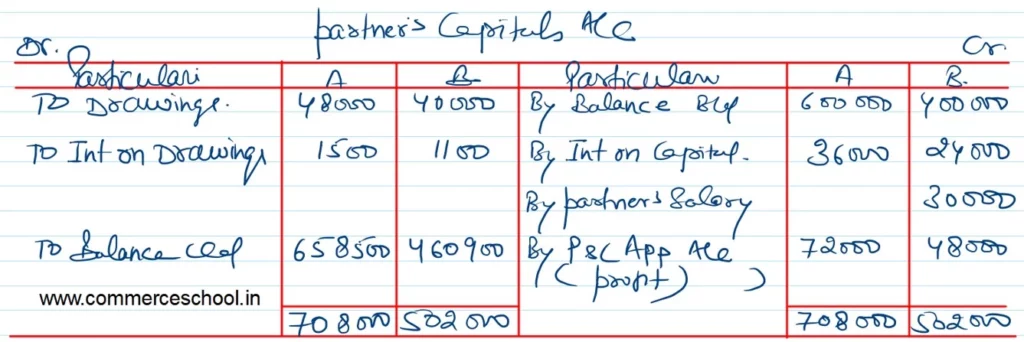 partner's Capitals A/C
Dr. Cr.
Particulars A B Particulars A B.
To Drawings. 48000 40000 By Balance B/d 600000 400000
To Int on Drawings 1500 1100 By Int on Capital. 36000 24000
By partner's Salary 30000
To Balance C/d 658500 460900 By P&L App A/C 72000 48000
(profit)
www.commerceschool.in
708000 502000 708000 502000